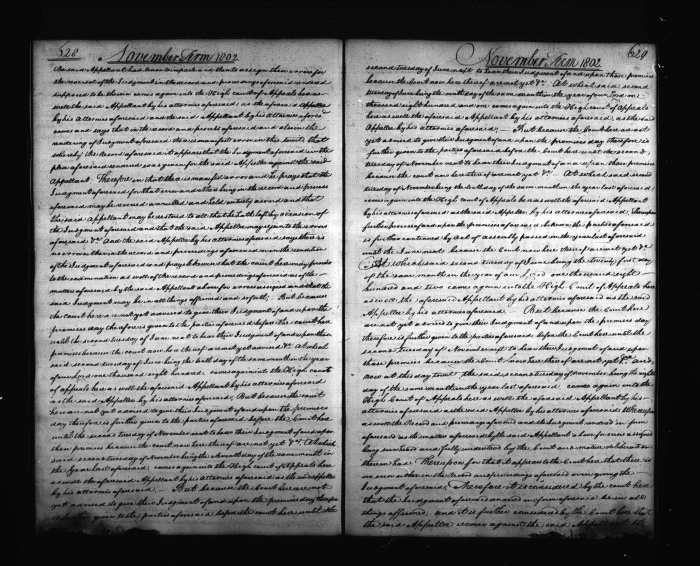 628
November Term 1802
the said Appellant had been impleaded that he assign the errors for
the reversal of the Judgment in the record and proceedings aforesaid
supposed to be therein comes again into the High Court of Appeals here as
well the said Appellant by his attorney aforesaid as the aforesaid Appellee
by his attorney aforesaid and the said Appellant by his attorney aforesaid
comes and says that in the record and process aforesaid and also in the
rendering of Judgment aforesaid there is manifest error in this to wit that
whereby the Record aforesaid it appears that the Judgment aforesaid in the
plea aforesaid rendered was given for the said Appellee against the said
Appellant Therefore in that there is manifest error and he prays that the
Judgment aforesaid for that error and others being in the record and process
aforesaid may be revised annulled and held entirely as void and that
the said Appellant may be restored to all that he hath lost by occasion of
the Judgment aforesaid and that the said Appellee may rejoin to the errors
aforesaid &c And the said Appellee by his attorney aforesaid says there is
no error either in the record and proceedings aforesaid or in the rendition
of the Judgment aforesaid and prays here that the court here may proceed
to the examination as well of the record and proceedings aforesaid as of the
matters aforesaid by the said Appellant above for error assigned and that the
said Judgment may be in all things affirmed and so forth, But because
the court here are not yet advised to give their Judgment of and upon the
premises day therefore is given to the parties aforesaid before the court here
until the second tuesday of June next to hear their Judgment of and upon those
premises because the court now here thereof are not yet advised &c At which
said second tuesday of June being the tenth day of the same month in the year
of our Lord one thousand eight hundred comes again into the High court
of Appeals here as well the aforesaid Appellant by his attorney aforesaid
as the said Appellee by his attorney aforesaid, But because the court
here are not yet advised to give their Judgment of and upon the premises
day therefore is further given to the parties aforesaid before the Court here
until the second tuesday of November next to hear their Judgment of and upon
those premises because the court now here thereof are not yet &c. At which
said second tuesday of November being the day of the same month in
the year last aforesaid comes again into the High court of Appeals here
as well the aforesaid Appellant by his attorney aforesaid as the said Appellee
by his attorney aforesaid. But because the Court here are not
yet advised to give their Judgment of and upon the premises day therefore
is further given to the parties aforesaid before the court here until the
629
November Term 1802
second tuesday of June next to hear their Judgment of and upon those premises
because the court now here thereof are not yet &c. At which said second
tuesday of June being the ninth day of the same month in the year of our Lord one
thousand eight hundred and one comes again into the High Court of Appeals
here as well the aforesaid Appellant by his attorney aforesaid, as the said
Appellee by his attorney aforesaid. But because the Court here are not
yet advised to give their Judgment of and upon the premises day therefore is
further given to the parties aforesaid before the Court here until the second
tuesday of November next to hear their Judgment of and upon those premises
because the court now here thereof are not yet &c. At which said second
tuesday of November being the tenth day of the same month in the year last aforesaid
comes again into the High Court of Appeals here as well the aforesaid Appellant
by his attorney aforesaid as the said Appellee by his attorney aforesaid, Thereupon
further process of and upon the premises aforesaid between the parties aforesaid
is further continued by act of assembly passed in the year last aforesaid
until the June next because the Court now here thereof are not yet &c
At which said second tuesday of June being the twenty first day
of the same month in the year of our Lord one thousand eight
hundred and two comes again into the High Court of Appeals here
as well the aforesaid Appellant by his attorney aforesaid as the said
Appellee by his attorney aforesaid. But because the Court here
are not yet advised to give their Judgment of and upon the premises day
therefore is further given to the parties aforesaid before the Court here until the
second tuesday of November next to hear their Judgment of and upon
those premises because the Court now here thereof are not yet &c And
now at this day to wit the said second tuesday of November being the ninth
day of the same month in the year last aforesaid comes again into the
High Court of Appeals here as well the aforesaid Appellant by his
attorney aforesaid as the said Appellee by his attorney aforesaid Whereupon
as well the Record and process aforesaid and the Judgment rendered in form
aforesaid as the matters aforesaid by the said Appellant above for error assigned
being seen heard and fully understood by the Court and mature deliberation
thereon had Thereupon for that it appears to the Court here that there is
no error either in the Record and proceedings aforesaid or in giving the
Judgment aforesaid, Therefore it is considered by the court here
that the Judgment aforesaid rendered in form aforesaid be in all
things affirmed, and it is further considered by the Court here that
the said Appellee recover against the said Appellant the